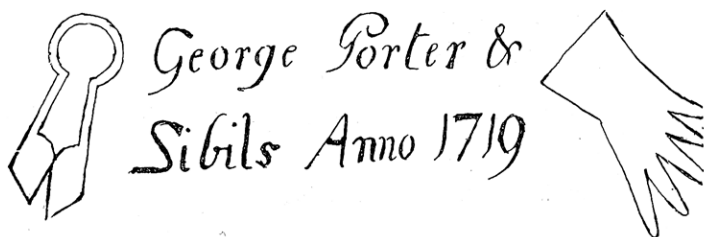 George Porter &
Sibils Anno 1719